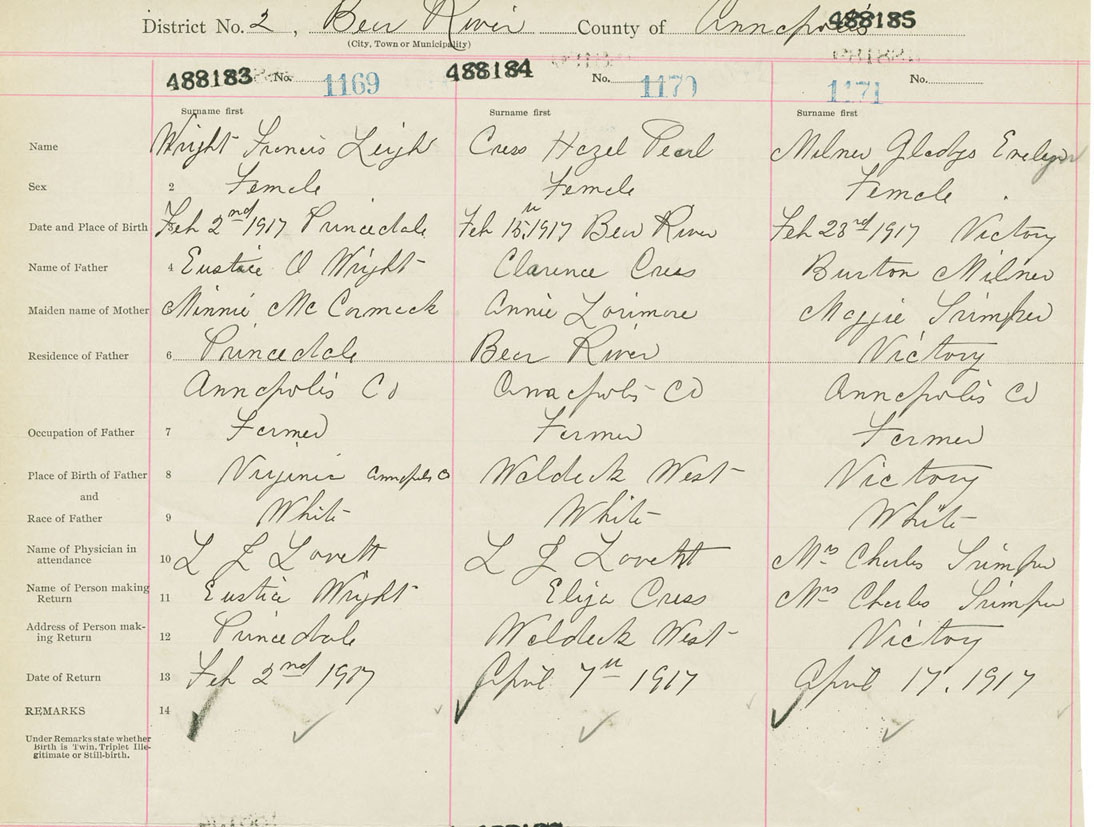 District No. 2, Bear River County of Annapolis 488185
(City, Town or Municipality)
488183 No. 1169 488184 No. 1170 1171 No.
Surname first Surname first Surname first
Name Wright Francis Leigh Cress Hazel Pearl Milner Gladys Evelyn
Sex 2 Female Female Female
Date and Place of Birth 3 Feb 2nd 1917 Princedale Feb 15th 1917 Bear River Feb 23rd 1917 Victory
Name of Father 4 Eustice O Wright Clarence Cress Burton Milner
Maiden name of Mother Minnie McCormack Annie Lorimore Maggie Trimper
Residence of Father 6 Princedale Bear River Victory
Annapolis Co Annapolis Co Annapolis Co
Occupation of Father 7 Farmer Farmer Farmer
Place of Birth of Father 8 Virginia Annapolis Co Waldeck West Victory
and
Race of Father 9 White White White
Name of Physician in
attendance 10 L J Lovett L J Lovett Mrs Charles Trimper
Name of Person making
Return 11 Eustice Wright Eliza Cress Mrs Charles Trimper
Address of Person mak-
ing Return 12 Princedale Waldeck West Victory
Date of Return 13 Feb 2nd 1917 April 7th 1917 April 17, 1917
REMARKS 14
Under Remarks state whether
Birth is Twin, Triplet Ille-
gitimate or Still-birth.